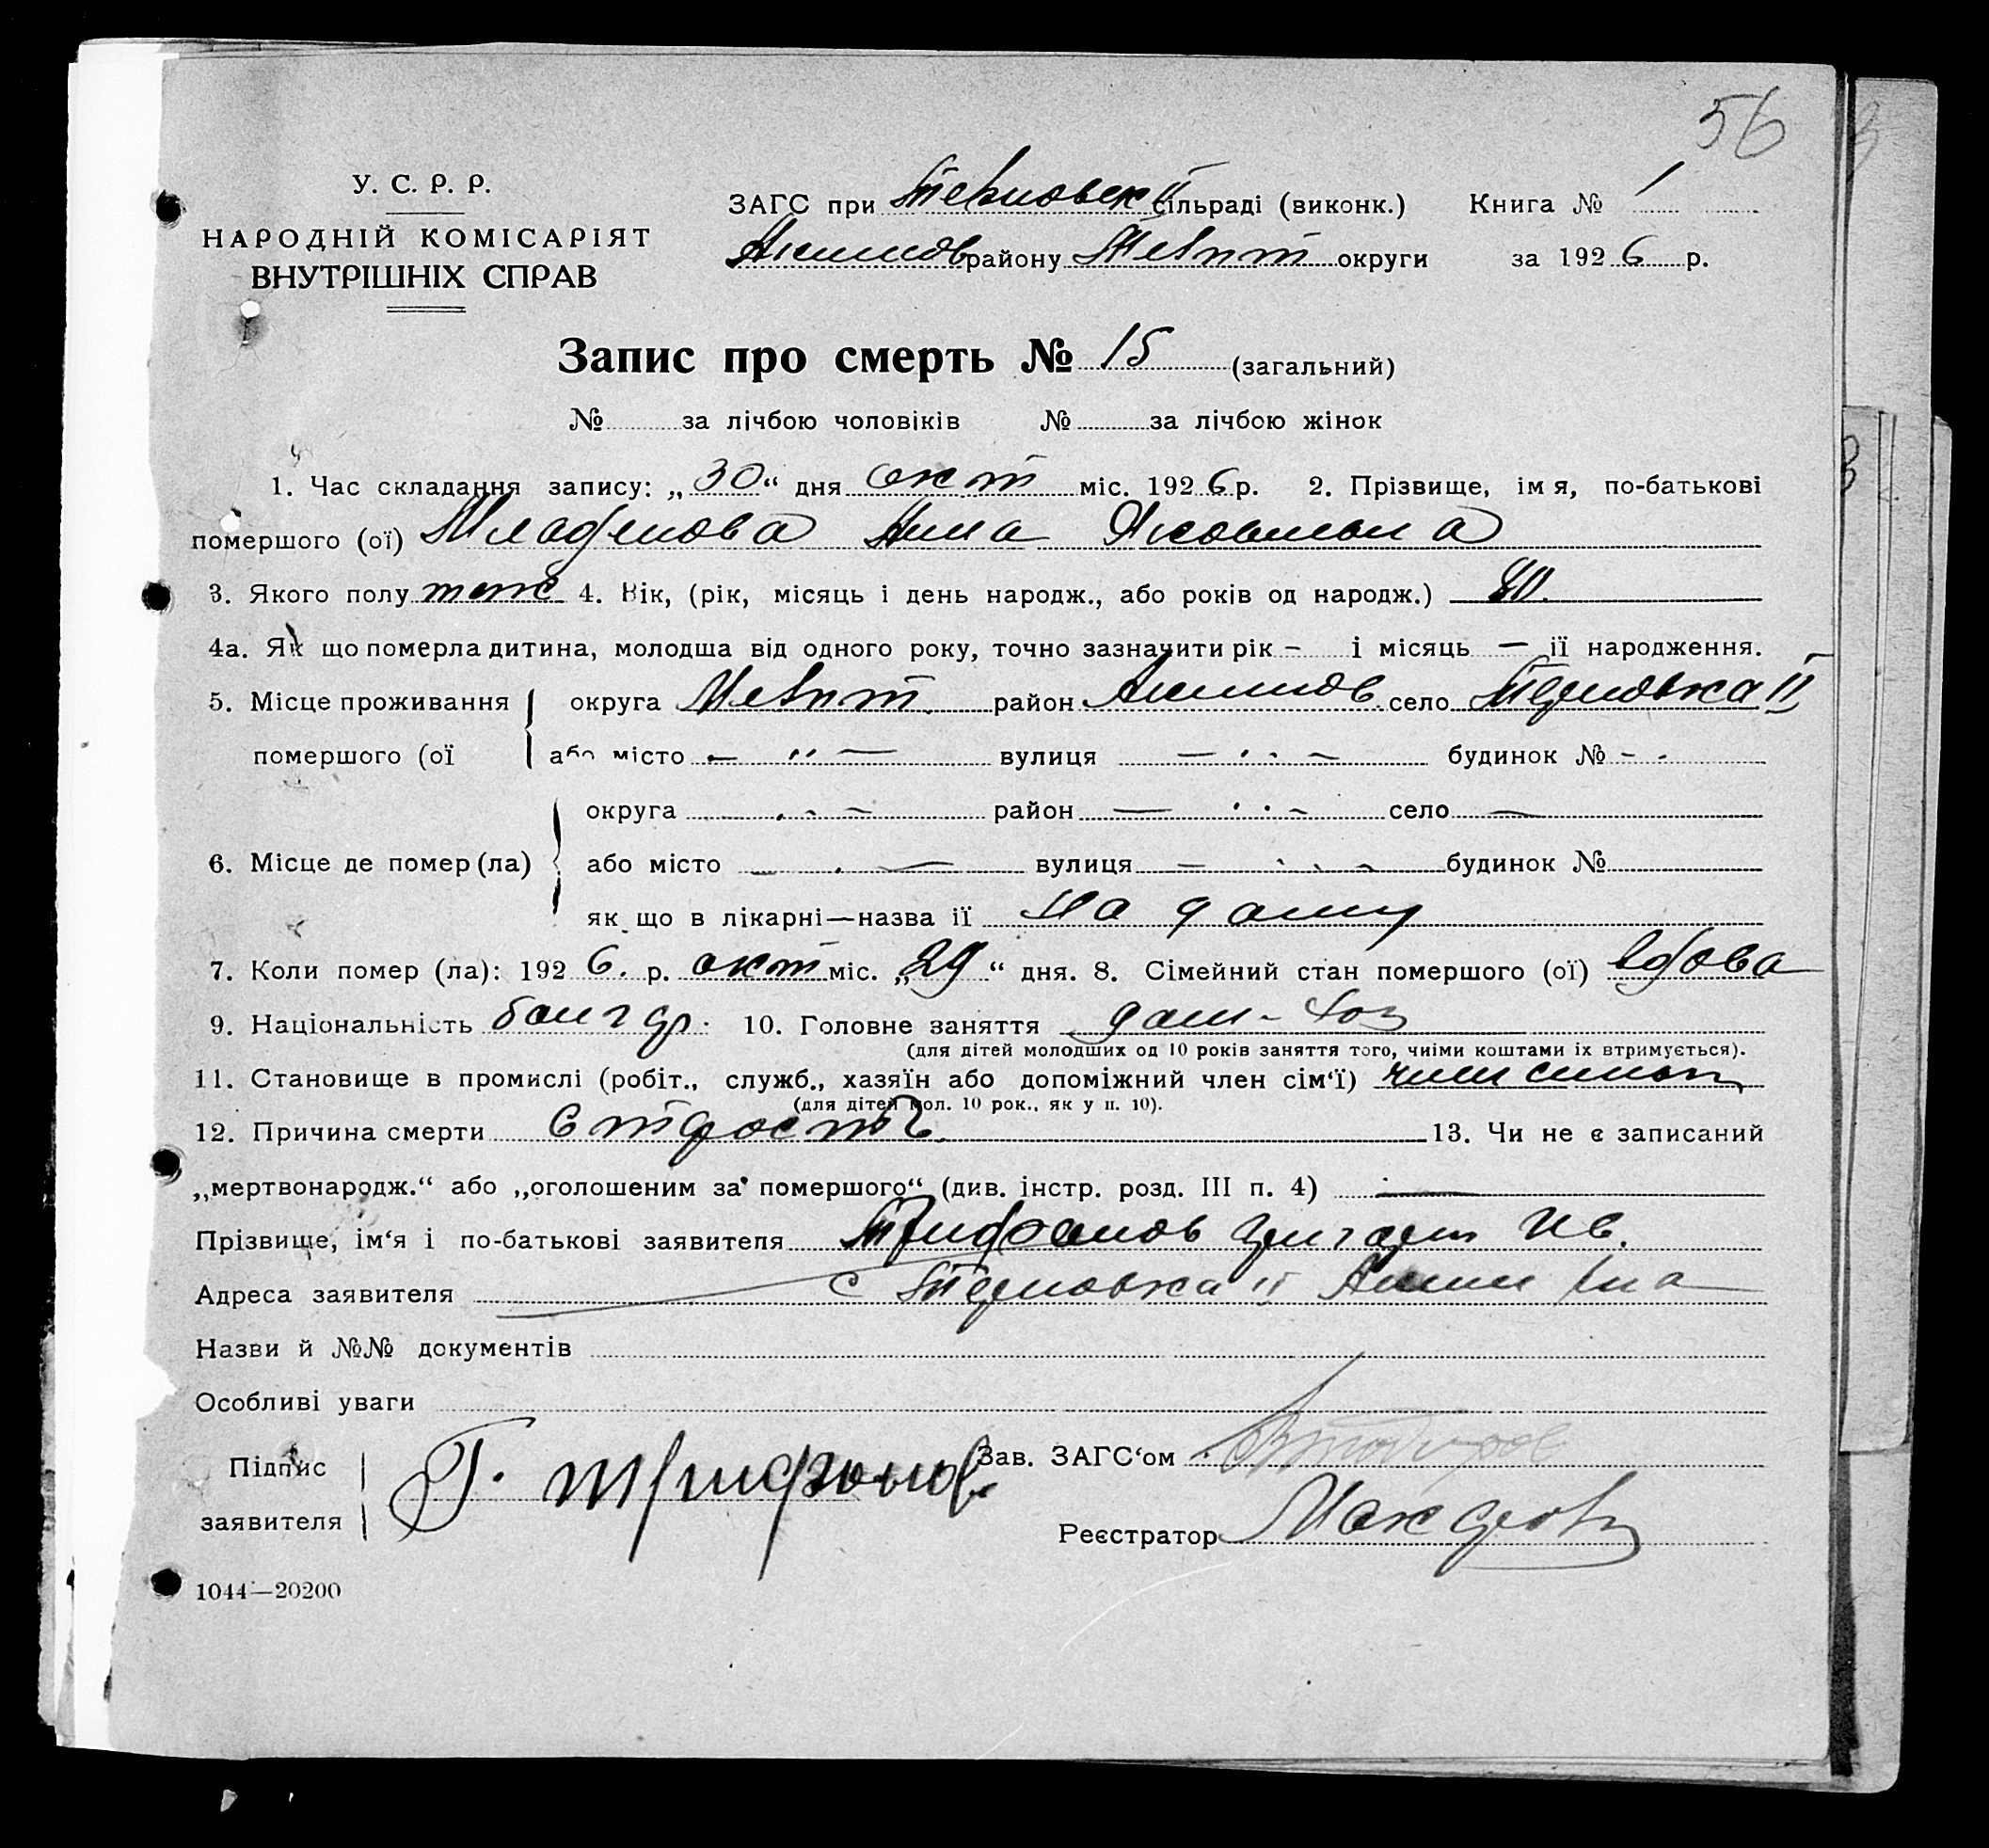 56
У. С. Р. Р.
НАРОДНІЙ КОМІСАРІЯТ
ВНУТРІШНІХ СПРАВ
ЗАГС при Терновск II сільраді (виконк.) Книга № 1
Акимов району Меліт округи за 1926 р.
Запис про смерть № 15 (загальний)
№ за лічбою чоловіків № за лічбою жінок
1. Час складання запису: „30“ дня окт міс. 1926 р. 2. Прізвище, імя, по-батькові
помершого (ої) Младенова Анна Яковлевна
3. Якого полу 4. Вік, (рік, місяць і день народж., або років од народж.) 80.
4а. Як що померла дитина, молодша від одного року, точно зазначити рік – і місяць — її народження.
5. Місце проживання округа Меліт. район Акимов. село Терновка II
помершого (ої або місто — " — вулиця — " — будинок № - -
округа район — село —
6. Місце де помер (ла) або місто вулиця будинок №
як що в лікарні—назва її На дому
7. Коли помер (ла): 1926. р. окт міс. „29“ дня. 8. Сімейний стан помершого (ої) вдова
9. Національність болгар. 10. Головне заняття дом-хоз
(для дітей молодших од 10 років заняття того, чиїми коштами їх втримується).
11. Становище в промислі (робіт., служб., хазяїн або допоміжний член сім‘ї) член
(для дітей мол. 10 рок., як у п. 10).
12. Причина смерти Старость 13. Чи не є записаний
„мертвонародж.“ або „оголошеним за помершого“ (див. інстр. розд. III п. 4) —
Прізвище, ім‘я і по-батькові заявителя Трифонов Григорий Ив.
Адреса заявителя с Терновка II Аким р-на
Назви й №№ документів
Особливі уваги
Підпис Г. Трифонов Зав. ЗАГС‘ом
заявителя Реєстратор
1044—20200